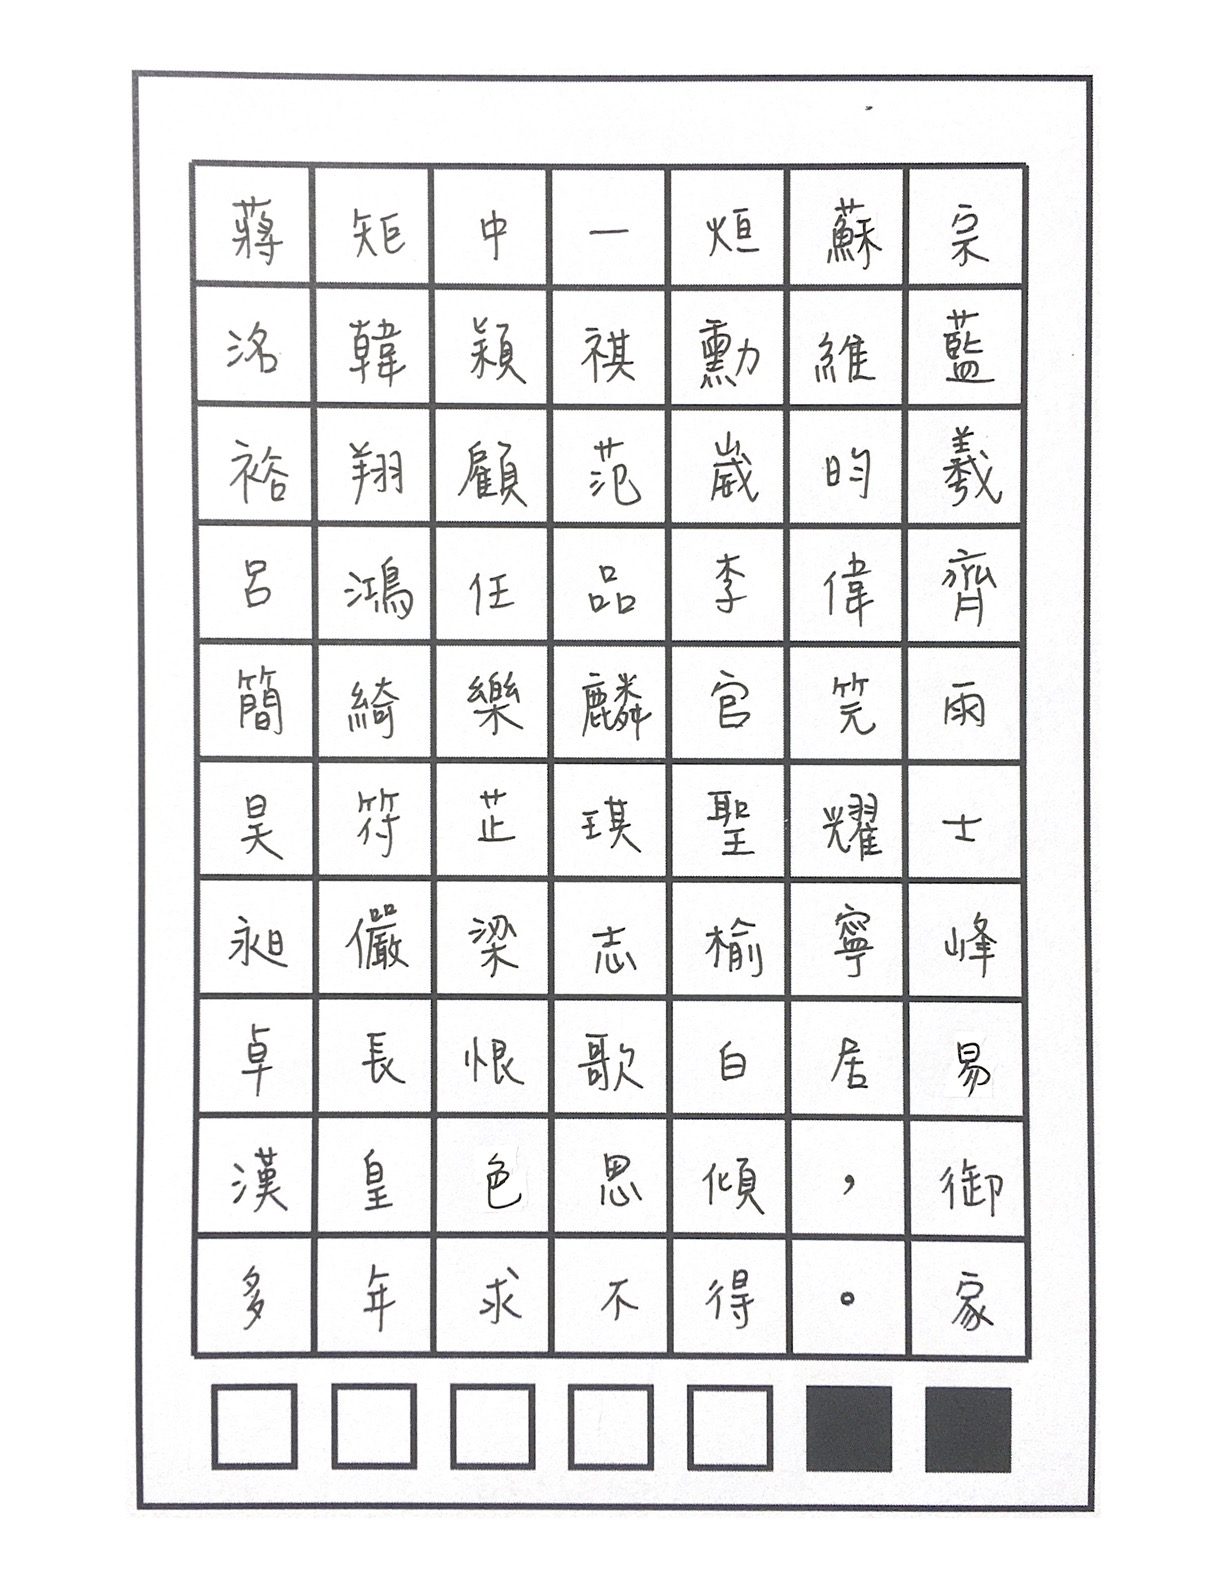 蔣矩中一烜蘇宗
洺韓潁祺勳維藍
裕翔顧范崴昀羲
呂鴻任品李偉齊
簡綺樂麟官筦雨
昊符芷琪聖耀士
昶儼梁志榆寧峰
卓長恨歌白居易
漢皇色思傾，御
多年求不得。家